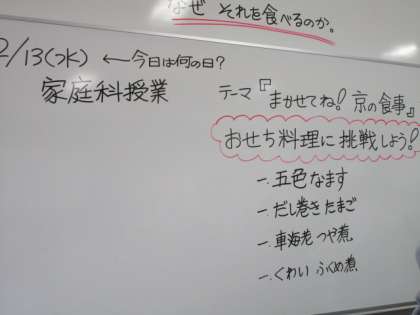 なぜ それを食べるのか。
2/13(水) ←今日は何の日?
家庭科授業
テーマ『まかせてね! 京の食事』
おせち料理に挑戦しよう!
一、五色なます
一、だし巻きたまご
一、車海老 つや煮
一、くわい ふくめ煮